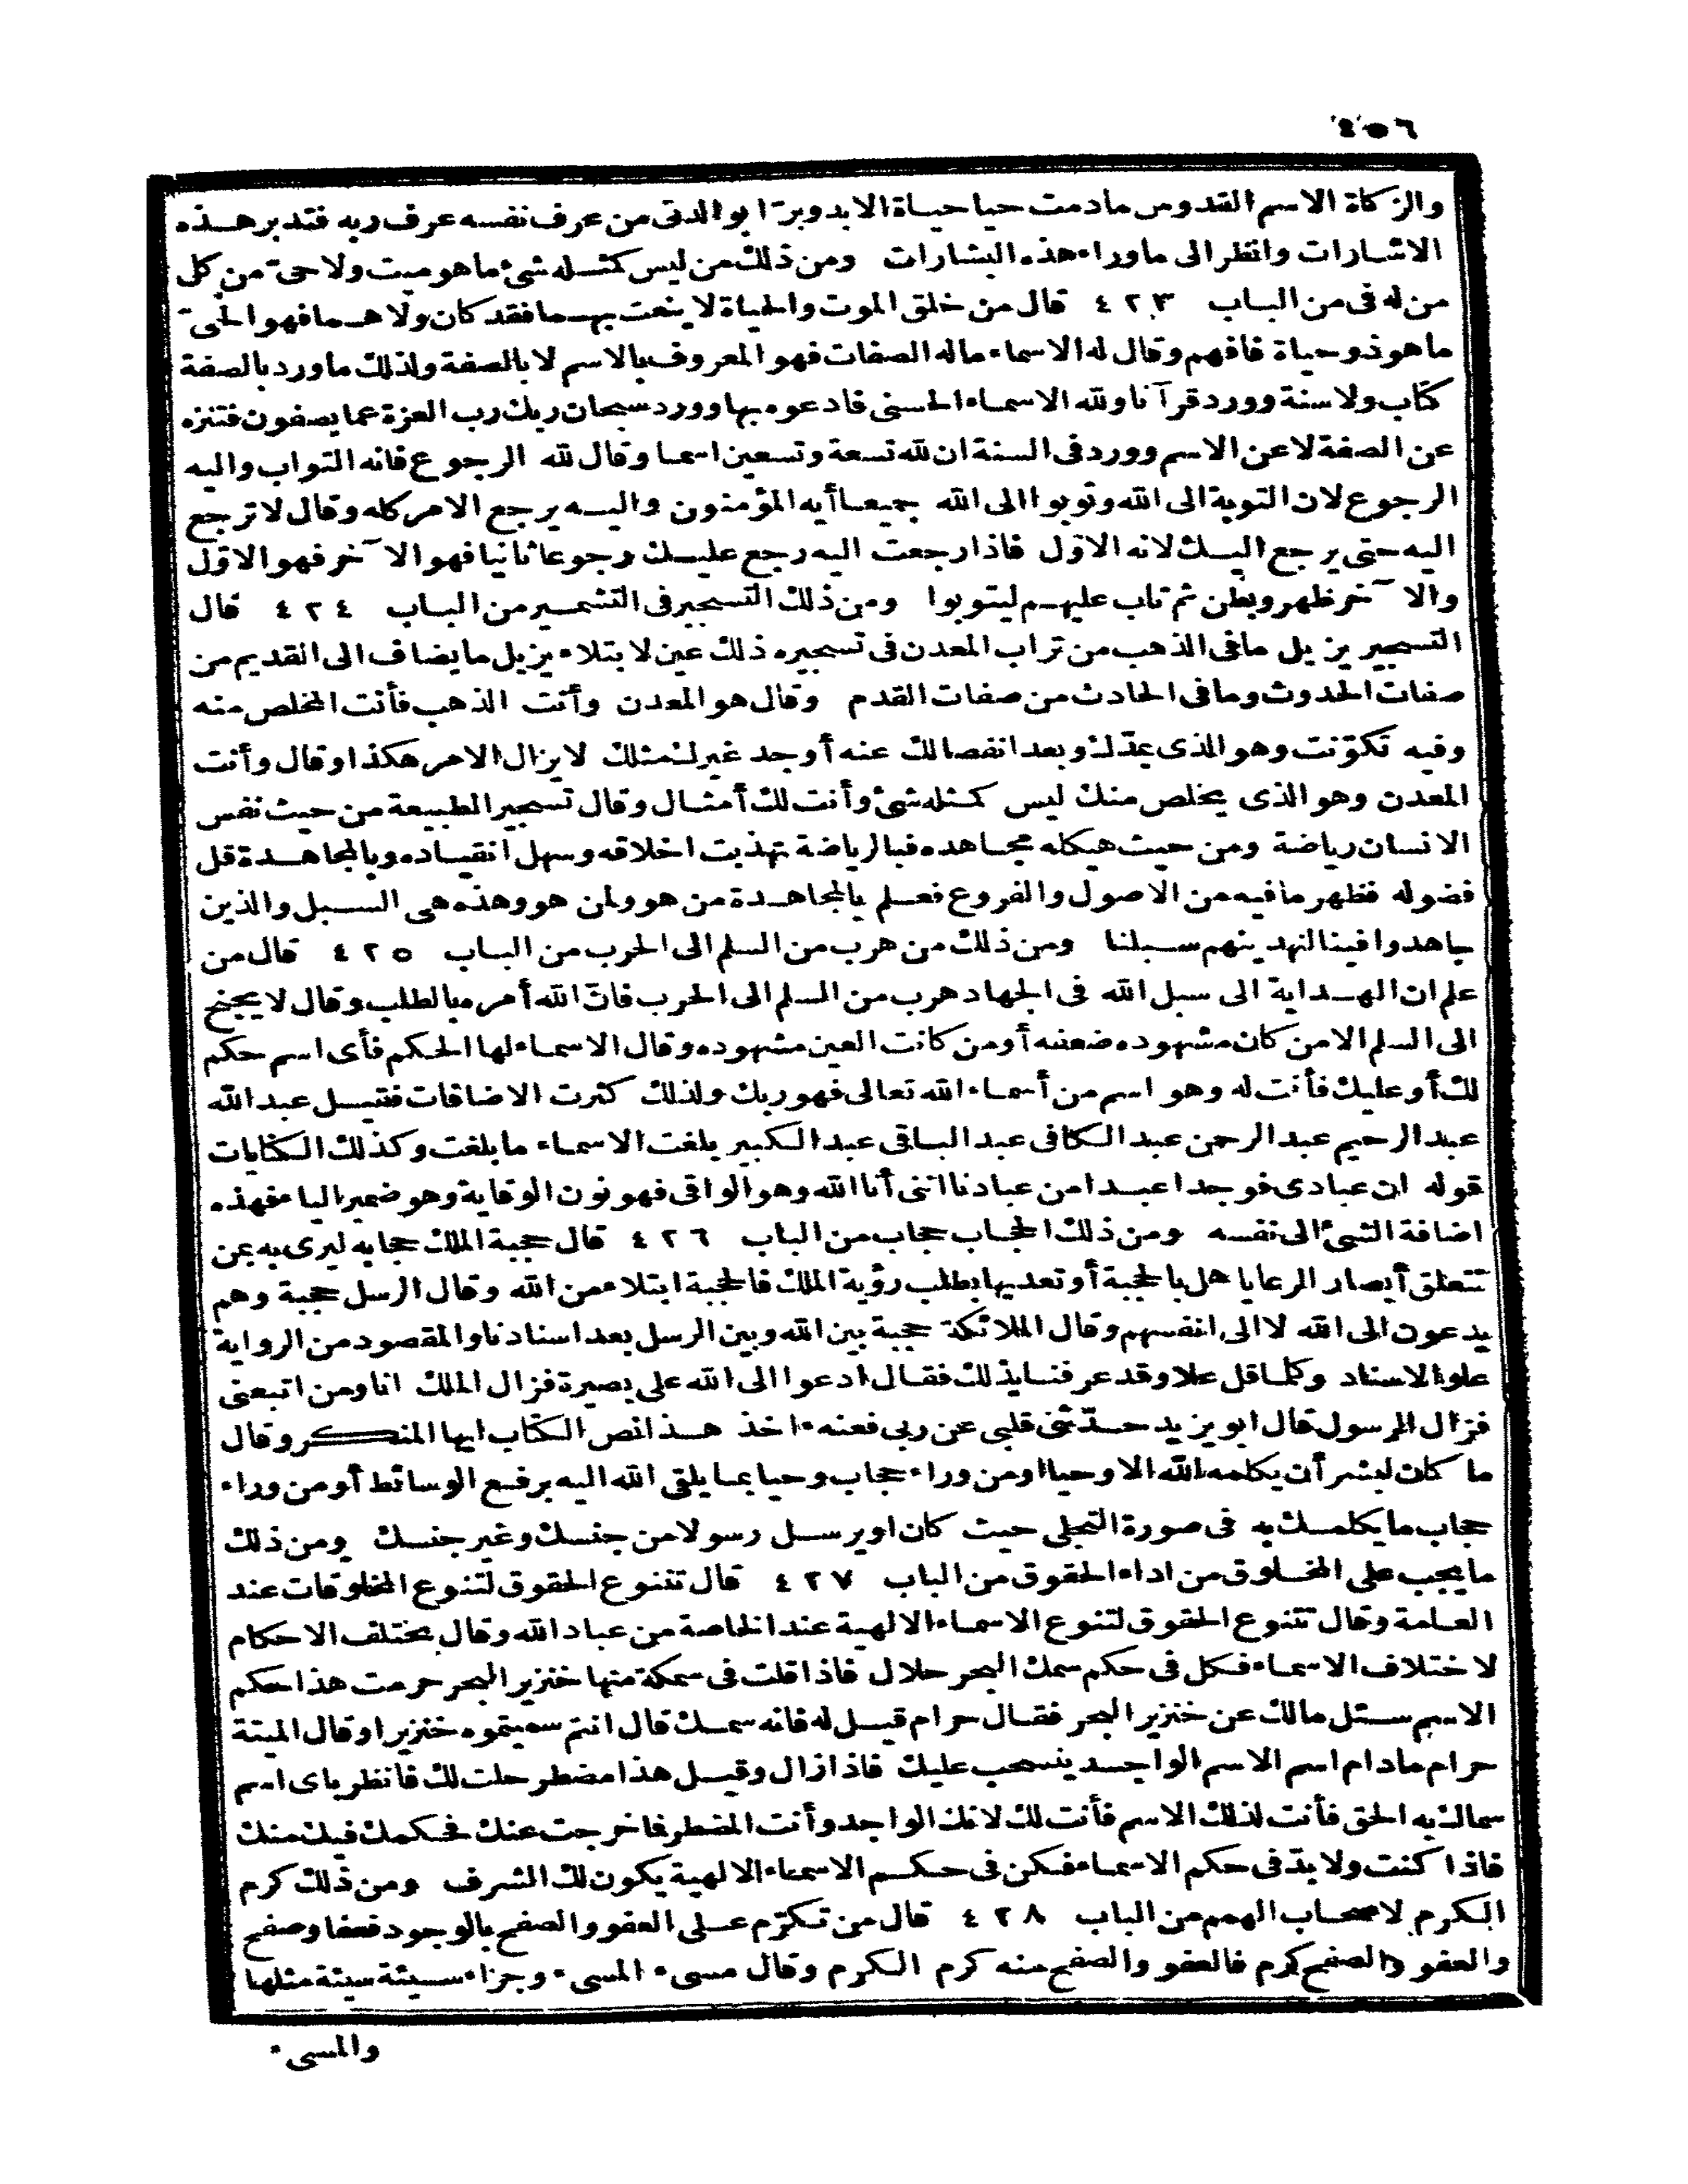 ٤٥٦
والزكاة الاسم القدوس مادمت حيا حياة الابد وبرّا بوالدتى من عرف نفسه عرف ربه فتدبر هذه
الاشارات وانظر الى ماوراء هذه البشارات ومن ذلك من ليس كمثله شئ ما هو ميت ولا حىّ من كل
من له فى من الباب ٤٢٣ قال من خلق الموت والحياة لا ينعت بهما فقد كان ولا هما فهو الحىّ
ما هو ذو حياة فافهم وقال له الاسماء ماله الصفات فهو المعروف بالاسم لا بالصفة ولذلك ماورد بالصفة
كتاب ولا سنة وورد قرآنا ولله الاسماء الحسنى فادعوه بها وورد سبحان ربك رب العزة عما يصفون فتنزه
عن الصفة لا عن الاسم وورد فى السنة ان لله تسعة وتسعين اسما وقال لله الرجوع فانه التواب واليه
الرجوع لان التوبة الى الله وتوبوا الى الله جميعا أيه المؤمنون واليه يرجع الامر كله وقال لا ترجع
اليه حتى يرجع اليك لانه الاوّل فاذا رجعت اليه رجع عليك رجوعا ثانيا فهو الآخر فهو الاوّل
والآخر ظهر وبطن ثم تاب عليهم ليتوبوا ومن ذلك التسجير فى التشمير من الباب ٤٢٤ قال
التسجير يزيل مافى الذهب من تراب المعدن فى تسجيره ذلك عين لابتلاء يزيل ما يضاف الى القديم من
صفات الحدوث وما فى الحادث من صفات القدم وقال هو المعدن وأنت الذهب فأنت المخلص منه
وفيه تكوّنت وهو الذى يمدّك وبعد انفصالك عنه أوجد غيرك مثلك لا يزال الامر هكذا وقال وأنت
المعدن وهو الذى يخلص منك ليس كمثله شئ وأنت لك أمثال وقال تسجير الطبيعة من حيث نفس
الانسان رياضة ومن حيث هيكله مجاهده فبالرياضة تهذبت اخلاقه وسهل انقياده وبالمجاهدة قل
فضوله فظهر ما فيه من الاصول والفروع فعلم بالمجاهدة من هو ولمن هو وهذه هى السبل والذين
جاهدوا فينا لنهدينهم سبلنا ومن ذلك من هرب من السلم الى الحرب من الباب ٤٢٥ قال من
علم ان الهداية الى سبل الله فى الجهاد هرب من السلم الى الحرب فانّ الله أمره بالطلب وقال لا يجنح
الى السلم الا من كان مشهوده ضعفه أو من كانت العين مشهوده وقال الاسماء لها الحكم فأى اسم حكم
لك أو عليك فأنت له وهو اسم من أسماء الله تعالى فهو ربك ولذلك كثرت الاضافات فقيل عبد الله
عبد الرحيم عبد الرحمن عبد الكافى عبد الباقى عبد الكبير بلغت الاسماء ما بلغت وكذلك الكنايات
قوله ان عبادى فوجدا عبدا من عبادنا اننى أنا الله وهو الواقى فهو نون الوقاية وهو ضمير الياء فهذه
اضافة الشئ الى نفسه ومن ذلك الحجاب حجاب من الباب ٤٢٦ قال حجبة الملك حجابه ليرى به عن
تتعلق أبصار الرعايا هل بالحجبة أو تعديها بطلب رؤية الملك فالحجبة ابتلاء من الله وقال الرسل حجبة وهم
يدعون الى الله لا الى انفسهم وقال الملائكة حجبة بين الله وبين الرسل بعد اسنادنا والمقصود من الرواية
علو الاسناد وكلما قل علا وقد عرفنا بذلك فقال ادعوا الى الله على بصيرة فزال الملك انا ومن اتبعنى
فزال الرسول قال ابو يزيد حدّثنى قلبى عن ربى فعنه اخذ هذا نص الكتاب ايها المنكر وقال
ما كان لبشر أن يكلمه الله الا وحيا او من وراء حجاب وحيا بما يلقى الله اليه برفع الوسائط أو من وراء
حجاب ما يكلمك به فى صورة التجلى حيث كان او يرسل رسولا من جنسك وغير جنسك ومن ذلك
ما يجب على المخلوق من اداء الحقوق من الباب ٤٢٧ قال تتنوع الحقوق لتنوع المخلوقات عند
العامة وقال تتنوع الحقوق لتنوع الاسماء الالهية عند الخاصة من عباد الله وقال يختلف الاحكام
لاختلاف الاسماء فكل فى حكم سمك البحر حلال فاذا قلت فى سمكة منها خنزير البحر حرمت هذا حكم
الاسم سئل مالك عن خنزير البحر فقال حرام قيل له فانه سمك قال انتم سميتموه خنزيرا وقال الميتة
حرام مادام اسم الاسم الواجد ينسحب عليك فاذا زال وقيل هذا مضطر حلت لك فانظر باى اسم
سماك به الحق فأنت لذلك الاسم فأنت لك لانك الواجد وأنت المضطر فما خرجت عنك فحكمك فيك منك
فاذا كنت ولا بدّ فى حكم الاسماء فكن فى حكم الاسماء الالهية يكون لك الشرف ومن ذلك كرم
الكرم لاصحاب الهمم من الباب ٤٢٨ قال من تكرّم على العفو والصفح بالوجود فعفا وصفح
والعفو والصفح كرم فالعفو والصفح منه كرم الكرم وقال مسىء المسىء وجزاء سيئة سيئة مثلها
والمسىء